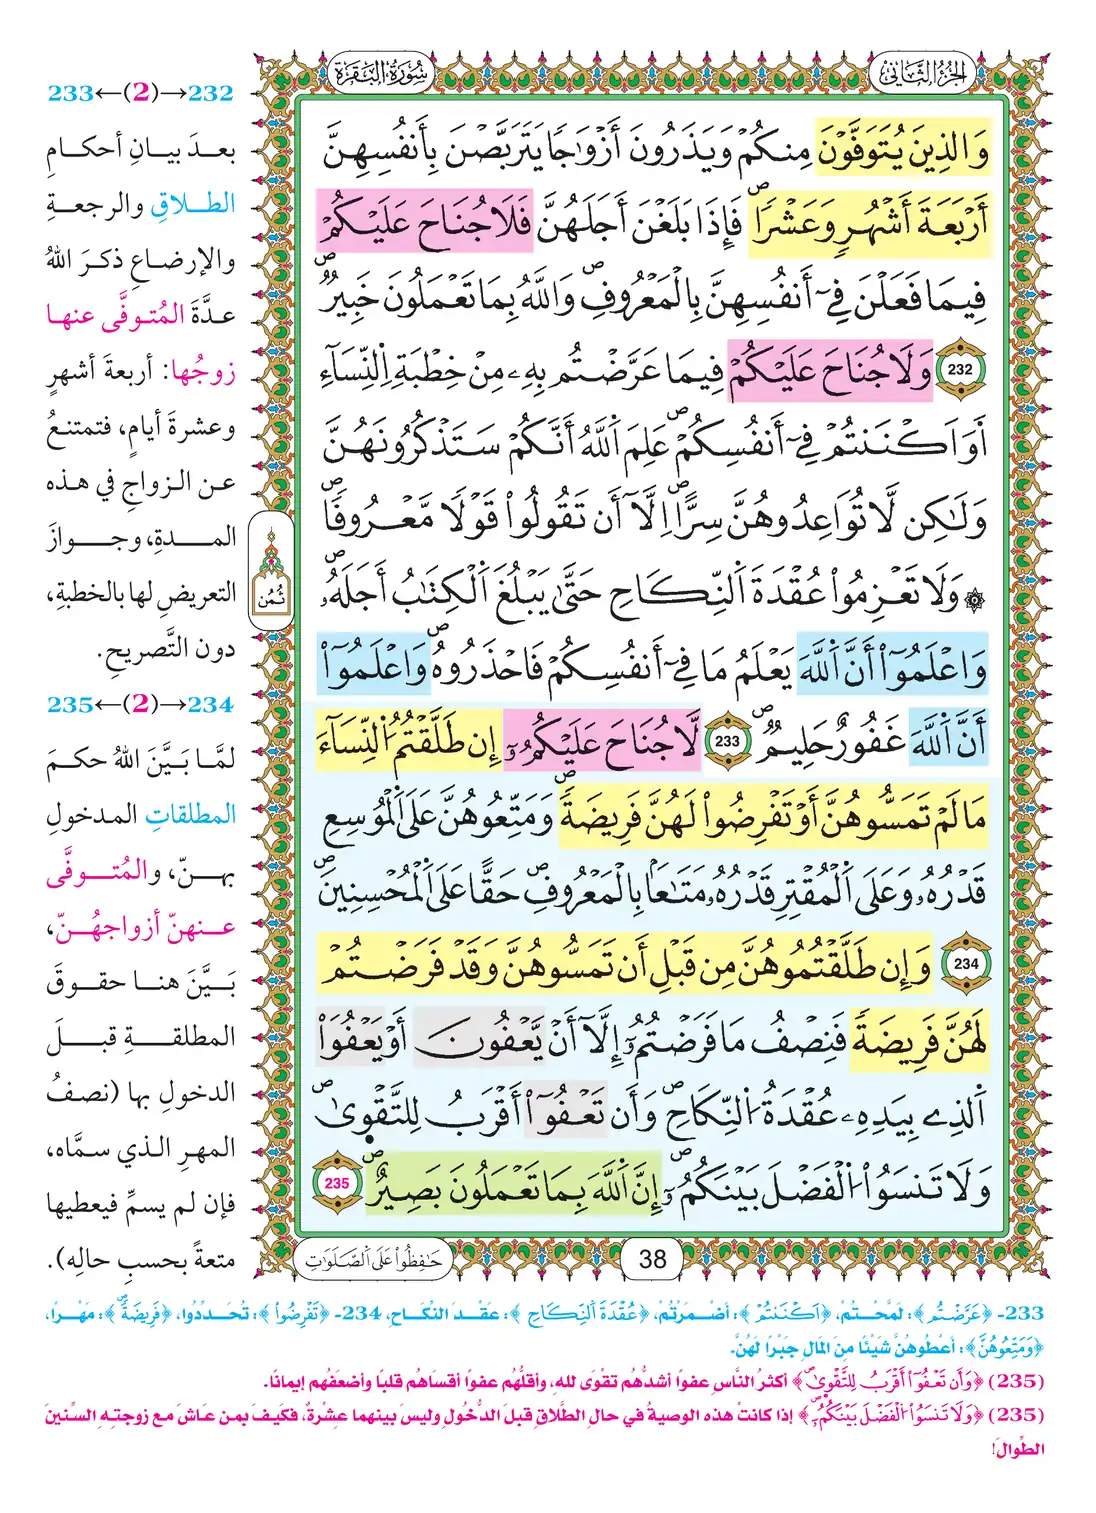 الجزء الثاني
سورة البقرة
وَالذِينَ يُتَوَفَّوْنَ مِنكُمْ وَيَذَرُونَ أَزْوَٰجاٗ يَتَرَبَّصْنَ بِأَنفُسِهِنَّ
أَرْبَعَةَ أَشْهُرٖ وَعَشْراٗۖ فَإِذَا بَلَغْنَ أَجَلَهُنَّ فَلَا جُنَاحَ عَلَيْكُمْ
فِيمَا فَعَلْنَ فِےٓ أَنفُسِهِنَّ بِالْمَعْرُوفِۖ وَاللَّهُ بِمَا تَعْمَلُونَ خَبِيرٞۖ
232 وَلَا جُنَاحَ عَلَيْكُمْ فِيمَا عَرَّضْتُم بِهِۦ مِنْ خِطْبَةِ اِ۬لنِّسَآءِ
أَوَ اَكْنَنتُمْ فِےٓ أَنفُسِكُمْۖ عَلِمَ اَ۬للَّهُ أَنَّكُمْ سَتَذْكُرُونَهُنَّ
وَلَٰكِن لَّا تُوَاعِدُوهُنَّ سِرّاًۖ اِلَّآ أَن تَقُولُواْ قَوْلاٗ مَّعْرُوفاٗۖ
۞ وَلَا تَعْزِمُواْ عُقْدَةَ اَ۬لنِّكَاحِ حَتَّىٰ يَبْلُغَ اَ۬لْكِتَٰبُ أَجَلَهُۥۖ
وَاعْلَمُوٓاْ أَنَّ اَ۬للَّهَ يَعْلَمُ مَا فِےٓ أَنفُسِكُمْ فَاحْذَرُوهُۖ وَاعْلَمُوٓاْ
أَنَّ اَ۬للَّهَ غَفُورٌ حَلِيمٞۖ 233 لَّا جُنَاحَ عَلَيْكُمُۥٓ إِن طَلَّقْتُمُ اُ۬لنِّسَآءَ
مَا لَمْ تَمَسُّوهُنَّ أَوْ تَفْرِضُواْ لَهُنَّ فَرِيضَةٗۖ وَمَتِّعُوهُنَّ عَلَى اَ۬لْمُوسِعِ
قَدْرُهُۥ وَعَلَى اَ۬لْمُقْتِرِ قَدْرُهُۥ مَتَٰعاَۢ بِالْمَعْرُوفِۖ حَقّاً عَلَى اَ۬لْمُحْسِنِينَۖ
234 وَإِن طَلَّقْتُمُوهُنَّ مِن قَبْلِ أَن تَمَسُّوهُنَّ وَقَدْ فَرَضْتُمْ
لَهُنَّ فَرِيضَةٗ فَنِصْفُ مَا فَرَضْتُمُۥٓ إِلَّآ أَنْ يَّعْفُونَ أَوْ يَعْفُوَاْ
اَ۬لذِے بِيَدِهِۦ عُقْدَةُ اُ۬لنِّكَاحِۖ وَأَن تَعْفُوٓاْ أَقْرَبُ لِلتَّقْوٜىٰۖ
وَلَا تَنسَوُاْ اُ۬لْفَضْلَ بَيْنَكُمُۥٓۖ إِنَّ اَ۬للَّهَ بِمَا تَعْمَلُونَ بَصِيرٌۖ 235
حَٰفِظُواْ عَلَى اَ۬لصَّلَوَٰتِ
38
ثُمُن
232→(2)←233
بعدَ بيانِ أحكامِ
الطلاقِ والرجعةِ
والإرضاعِ ذكرَ اللهُ
عدَّةَ المُتوفَّى عنها
زوجُها: أربعةَ أشهرٍ
وعشرةَ أيامٍ، فتمتنعُ
عن الزواجِ في هذه
المدةِ، وجوازَ
التعريضِ لها بالخطبةِ،
دون التَّصريحِ.
234→(2)←235
لمَّا بَيَّنَ اللهُ حكمَ
المطلقاتِ المدخولِ
بهنّ، والمُتوفَّى
عنهنّ أزواجهُنّ،
بَيَّنَ هنا حقوقَ
المطلقةِ قبلَ
الدخولِ بها (نصفُ
المهرِ الذي سمَّاه،
فإن لم يسمِّ فيعطيها
متعةً بحسبِ حالِه).
233- ﴿عَرَّضْتُم﴾: لَمَّحْتُمْ، ﴿اَكْنَنتُمْ﴾: أَضْمَرْتُمْ، ﴿عُقْدَةَ اَ۬لنِّكَاحِ﴾: عَقْدَ النِّكَاحِ، 234- ﴿تَفْرِضُواْ﴾: تُحَدِّدُوا، ﴿فَرِيضَةٗۖ﴾: مَهْرًا،
﴿وَمَتِّعُوهُنَّ﴾: أَعْطُوهُنَّ شَيْئًا مِنَ المَالِ جَبْرًا لَهُنَّ.
(235) ﴿وَأَن تَعْفُوٓاْ أَقْرَبُ لِلتَّقْوٜىٰۖ﴾ أكثرُ النَّاسِ عفوًا أشدُّهم تقوَى لله، وأقلُّهم عفوًا أقسَاهم قلبًا وأضعَفهم إيمانًا.
(235) ﴿وَلَا تَنسَوُاْ اُ۬لْفَضْلَ بَيْنَكُمُۥٓۖ﴾ إذا كانتْ هذه الوصيةُ في حالِ الطَّلاقِ قبلَ الدُّخُولِ وليسَ بينهما عشرةٌ، فكيفَ بمن عـاشَ مـع زوجتـهِ السـنينَ
الطِّوالَ!